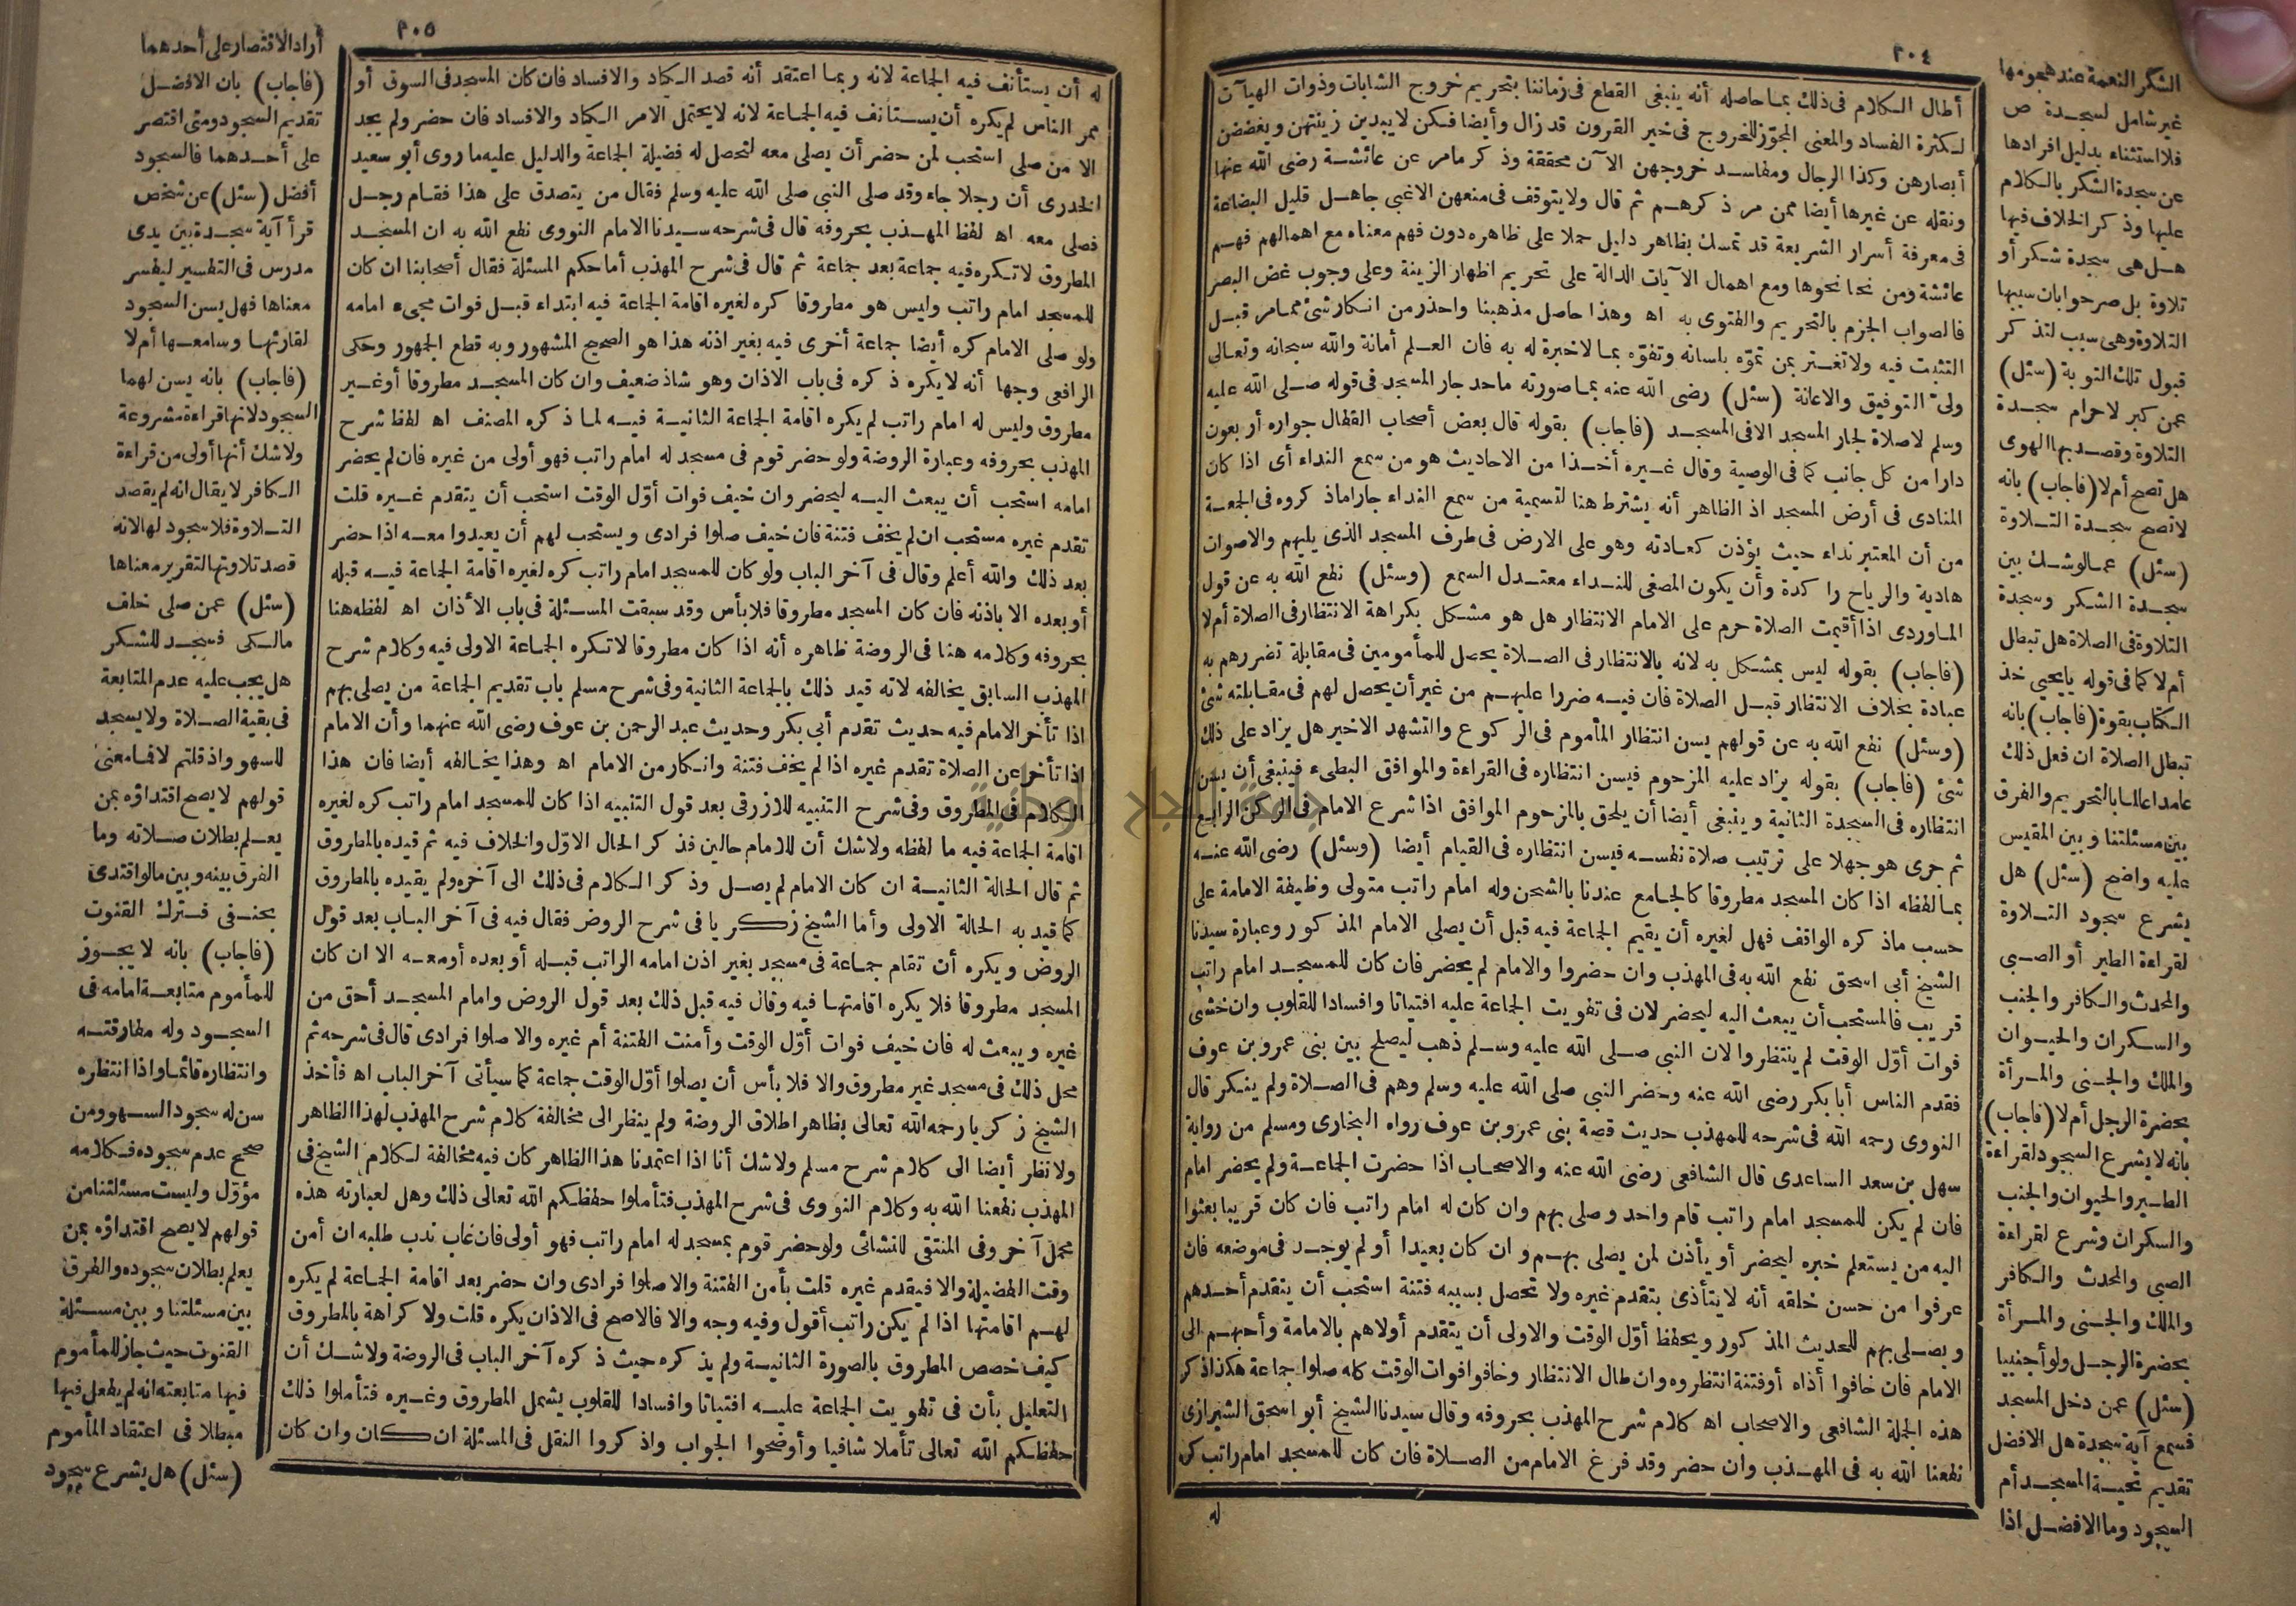 ٢٠٤
أطال الكلام في ذلك بما حاصله أنه ينبغي القطع في زماننا بتحريم خروج الشابات وذوات الهيآت
لكثرة الفساد والمعنى المجوّز للخروج في خير القرون قد زال وأيضا فكن لا يبدين زينتهن ويغضضن
أبصارهن وكذا الرجال ومفاسد خروجهن الآن محققة وذكر ما مر عن عائشة رضى الله عنها
ونقله عن غيرها أيضا ممن مر ذكرهم ثم قال ولا يتوقف في منعهن الا غبي جاهل قليل البضاعة
في معرفة أسرار الشريعة قد تمسك بظاهر دليل حملا على ظاهره دون فهم معناه مع اهمالهم فهم
عائشة ومن نحا نحوها ومع اهمال الآيات الدالة على تحريم اظهار الزينة وعلى وجوب غض البصر
فالصواب الجزم بالتحريم والفتوى به اه وهذا حاصل مذهبنا واحذر من انكار شئ مما مر قبل
التثبت فيه ولا تغتر بمن تموّه بلسانه وتفوّه بما لا خبرة له به فان العلم أمانة والله سبحانه وتعالى
ولىّ التوفيق والاعانة (سئل) رضى الله عنه بما صورته ما حد جار المسجد في قوله صلى الله عليه
وسلم لا صلاة لجار المسجد الا في المسجد (فاجاب) بقوله قال بعض أصحاب القفال جواره أربعون
دارا من كل جانب كما في الوصية وقال غيره أخذا من الاحاديث هو من سمع النداء أى اذا كان
المنادى في أرض المسجد اذ الظاهر أنه يشترط هنا لتسمية من سمع النداء جارا ماذكروه في الجمعة
من أن المعتبر نداء حيث يؤذن كعادته وهو على الارض في طرف المسجد الذى يليهم والاصوات
هادية والرياح راكدة وأن يكون المصغى للنداء معتدل السمع (وسئل) نفع الله به عن قول
الماوردى اذا أقيمت الصلاة حرم على الامام الانتظار هل هو مشكل بكراهة الانتظار في الصلاة أم لا
(فاجاب) بقوله ليس بمشكل به لانه بالانتظار في الصلاة يحصل للمأمومين في مقابلة تضررهم به
عبادة بخلاف الانتظار قبل الصلاة فان فيه ضررا عليهم من غير أن يحصل لهم في مقابلته شئ
(وسئل) نفع الله به عن قولهم يسن انتظار المأموم في الركوع والتشهد الاخير هل يزاد على ذلك
شئ (فاجاب) بقوله يزاد عليه المزحوم فيسن انتظاره في القراءة والموافق البطىء فينبغي أن يسن
انتظاره في السجدة الثانية وينبغي أيضا أن يلحق بالمزحوم الموافق اذا شرع الامام في الركن الرابع
ثم جرى هو جهلا على ترتيب صلاة نفسه فيسن انتظاره في القيام أيضا (وسئل) رضى الله عنه
بما لفظه اذا كان المسجد مطروقا كالجامع عندنا بالشحن وله امام راتب متولى وظيفة الامامة على
حسب ماذكره الواقف فهل لغيره أن يقيم الجماعة فيه قبل أن يصلى الامام المذكور وعبارة سيدنا
الشيخ أبى اسحق نفع الله به في المهذب وان حضروا والامام لم يحضر فان كان للمسجد امام راتب
قريب فالمستحب أن يبعث اليه ليحضر لان في تفويت الجماعة عليه افتياتا وافسادا للقلوب وان خشى
فوات أوّل الوقت لم ينتظروا لان النبى صلى الله عليه وسلم ذهب ليصلح بين بنى عمرو بن عوف
فقدم الناس أبا بكر رضى الله عنه وحضر النبى صلى الله عليه وسلم وهم في الصلاة ولم ينكر قال
النووى رحمه الله في شرحه للمهذب حديث قصة بنى عمرو بن عوف رواه البخارى ومسلم من رواية
سهل بن سعد الساعدى قال الشافعى رضى الله عنه والاصحاب اذا حضرت الجماعة ولم يحضر امام
فان لم يكن للمسجد امام راتب قام واحد وصلى بهم وان كان له امام راتب فان كان قريبا بعثوا
اليه من يستعلم خبره ليحضر أو يأذن لمن يصلى بهم وان كان بعيدا أو لم يوجد في موضعه فان
عرفوا من حسن خلقه أنه لا يتأذى بتقدم غيره ولا تحصل بسببه فتنة استحب أن يتقدم أحدهم
ويصلى بهم للحديث المذكور ويحفظ أوّل الوقت والاولى أن يتقدم أولاهم بالامامة وأحبهم الى
الامام فان خافوا أذاه أو فتنة انتظروه وان طال الانتظار وخافوا فوات الوقت كله صلوا جماعة هكذا ذكر
هذه الجملة الشافعى والاصحاب اه كلام شرح المهذب بحروفه وقال سيدنا الشيخ أبو اسحق الشيرازى
نفعنا الله به في المهذب وان حضر وقد فرغ الامام من الصلاة فان كان للمسجد امام راتب كره
له
الشكر النعمة عند هجومها
غير شامل لسجدة ص
فلا استثناء بدليل افرادها
عن سجدة الشكر بالكلام
عليها وذكر الخلاف فيها
هل هى سجدة شكر أو
تلاوة بل صرحوا بان سببها
التلاوة وهى سبب لتذكر
قبول تلك التوبة (سئل)
عمن كبر لاحرام سجدة
التلاوة وقصد بها الهوى
هل تصح أم لا (فاجاب) بانه
لا تصح سجدة التلاوة
(سئل) عما لو شك بين
سجدة الشكر وسجدة
التلاوة في الصلاة هل تبطل
أم لا كما في قوله يا يحيى خذ
الكتاب بقوة (فاجاب) بانه
تبطل الصلاة ان فعل ذلك
عامدا عالما بالتحريم والفرق
بين مسئلتنا وبين المقيس
عليه واضح (سئل) هل
يشرع سجود التلاوة
لقراءة الطير أو الصبى
والمحدث والكافر والجنب
والسكران والحيوان
والملك والجنى والمرأة
بحضرة الرجل أم لا (فاجاب)
بانه لا يشرع السجود لقراءة
الطير والحيوان والجنب
والسكران وشرع لقراءة
الصبى والمحدث والكافر
والملك والجنى والمرأة
بحضرة الرجل ولو أجنبيا
(سئل) عمن دخل المسجد
فسمع آية سجدة هل الافضل
تقديم تحية المسجد أم
السجود وما الافضل اذا
٢٠٥
له أن يستأنف فيه الجماعة لانه ربما اعتقد أنه قصد الكياد والافساد فان كان المسجد في السوق أو
ممر الناس لم يكره أن يستأنف فيه الجماعة لانه لا يحتمل الامر الكياد والافساد فان حضر ولم يجد
الا من صلى استحب لمن حضر أن يصلى معه لتحصل له فضيلة الجماعة والدليل عليه ما روى أبو سعيد
الخدرى أن رجلا جاء وقد صلى النبى صلى الله عليه وسلم فقال من يتصدق على هذا فقام رجل
فصلى معه اه لفظ المهذب بحروفه قال في شرحه سيدنا الامام النووى نفع الله به ان المسجد
المطروق لا تكره فيه جماعة بعد جماعة ثم قال في شرح المهذب أما حكم المسئلة فقال أصحابنا ان كان
للمسجد امام راتب وليس هو مطروقا كره لغيره اقامة الجماعة فيه ابتداء قبل فوات مجىء امامه
ولو صلى الامام كره أيضا جماعة أخرى فيه بغير اذنه هذا هو الصحيح المشهور وبه قطع الجمهور وحكى
الرافعى وجها أنه لا يكره ذكره في باب الاذان وهو شاذ ضعيف وان كان المسجد مطروقا أو غير
مطروق وليس له امام راتب لم يكره اقامة الجماعة الثانية فيه لما ذكره المصنف اه لفظ شرح
المهذب بحروفه وعبارة الروضة ولو حضر قوم في مسجد له امام راتب فهو أولى من غيره فان لم يحضر
امامه استحب أن يبعث اليه ليحضر وان خيف فوات أوّل الوقت استحب أن يتقدم غيره قلت
تقدم غيره مستحب ان لم يخف فتنة فان خيف صلوا فرادى ويستحب لهم أن يعيدوا معه اذا حضر
بعد ذلك والله أعلم وقال في آخر الباب ولو كان للمسجد امام راتب كره لغيره اقامة الجماعة فيه قبله
أو بعده الا باذنه فان كان المسجد مطروقا فلا بأس وقد سبقت المسئلة في باب الأذان اه لفظه هنا
بحروفه وكلامه هنا في الروضة ظاهره أنه اذا كان مطروقا لا تكره الجماعة الاولى فيه وكلام شرح
المهذب السابق يخالفه لانه قيد ذلك بالجماعة الثانية وفي شرح مسلم باب تقديم الجماعة من يصلى بهم
اذا تأخر الامام فيه حديث تقدم أبى بكر وحديث عبد الرحمن بن عوف رضى الله عنهما وأن الامام
اذا تأخر عن الصلاة تقدم غيره اذا لم يخف فتنة وانكار من الامام اه وهذا يخالفه أيضا فان هذا
الكلام في المطروق وفي شرح التنبيه للازرقى بعد قول التنبيه اذا كان للمسجد امام راتب كره لغيره
اقامة الجماعة فيه ما لفظه ولا شك أن للامام حالين فذكر الحال الاوّل والخلاف فيه ثم قيده بالمطروق
ثم قال الحالة الثانية ان كان الامام لم يصل وذكر الكلام في ذلك الى آخره ولم يقيده بالمطروق
كما قيد به الحالة الاولى وأما الشيخ زكريا في شرح الروض فقال فيه في آخر الباب بعد قول
الروض ويكره أن تقام جماعة في مسجد بغير اذن امامه الراتب قبله أو بعده أو معه الا ان كان
المسجد مطروقا فلا يكره اقامتها فيه وقال فيه قبل ذلك بعد قول الروض وامام المسجد أحق من
غيره ويبعث له فان خيف فوات أوّل الوقت وأمنت الفتنة أم غيره والا صلوا فرادى قال في شرحه ثم
محل ذلك في مسجد غير مطروق والا فلا بأس أن يصلوا أوّل الوقت جماعة كما سيأتى آخر الباب اه فأخذ
الشيخ زكريا رحمه الله تعالى بظاهر اطلاق الروضة ولم ينظر الى مخالفة كلام شرح المهذب لهذا الظاهر
ولا نظر أيضا الى كلام شرح مسلم ولا شك أنا اذا اعتمدنا هذا الظاهر كان فيه مخالفة لكلام الشيخ في
المهذب نفعنا الله به وكلام النووى في شرح المهذب فتأملوا حفظكم الله تعالى ذلك وهل لعبارته هذه
محمل آخر وفى المنتقى للنشائى ولو حضر قوم بمسجد له امام راتب فهو أولى فان غاب ندب طلبه ان أمن
وقت الفضيلة والا فيقدم غيره قلت بأمن الفتنة والا صلوا فرادى وان حضر بعد اقامة الجماعة لم يكره
لهم اقامتها اذا لم يكن راتب أقول وفيه وجه والا فالاصح في الاذان يكره قلت ولا كراهة بالمطروق
كيف خصص المطروق بالصورة الثانية ولم يذكره حيث ذكره آخر الباب في الروضة ولا شك أن
التعليل بأن في تفويت الجماعة عليه افتياتا وافسادا للقلوب يشمل المطروق وغيره فتأملوا ذلك
حفظكم الله تعالى تأملا شافيا وأوضحوا الجواب واذكروا النقل في المسئلة ان كان وان كان
أراد الاقتصار على أحدهما
(فاجاب) بان الافضل
تقديم السجود ومتى اقتصر
على أحدهما فالسجود
أفضل (سئل) عن شخص
قرأ آية سجدة بين يدى
مدرس في التفسير ليفسر
معناها فهل يسن السجود
لقارئها وسامعها أم لا
(فاجاب) بانه يسن لهما
السجود لانها قراءة مشروعة
ولا شك أنها أولى من قراءة
الكافر لا يقال انه لم يقصد
التلاوة فلا سجود لها لانه
قصد تلاوتها لتقرير معناها
(سئل) عمن صلى خلف
مالكى فسجد للشكر
هل يجب عليه عدم المتابعة
في بقية الصلاة ولا يسجد
للسهو واذ قلتم لا فما معنى
قولهم لا يصح اقتداؤه بمن
يعلم بطلان صلاته وما
الفرق بينه وبين ما لو اقتدى
بحنفى فترك القنوت
(فاجاب) بانه لا يجوز
للمأموم متابعة امامه في
السجود وله مفارقته
وانتظاره قائما واذا انتظره
سن له سجود السهو ومن
صحح عدم سجوده فكلامه
مؤوّل وليست مسئلتنا من
قولهم لا يصح اقتداؤه بمن
يعلم بطلان سجوده والفرق
بين مسئلتنا وبين مسئلة
القنوت حيث جاز للمأموم
فيها متابعته انه لم يفعل فيها
مبطلا في اعتقاد المأموم
(سئل) هل يشرع سجود